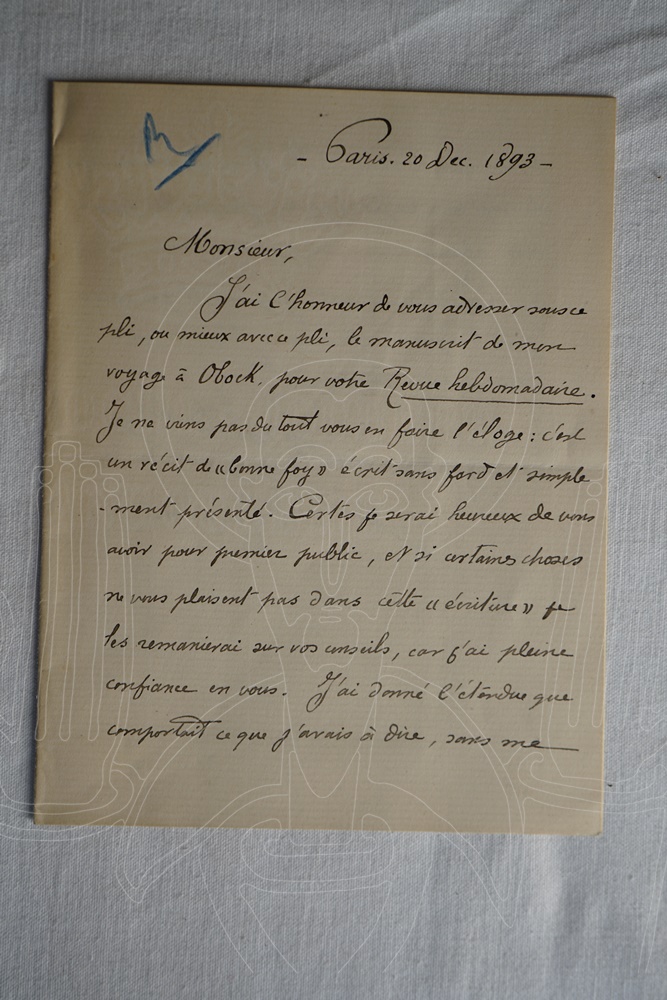 - Paris. 20 Dec. 1893 -
Monsieur,
J'ai l'honneur de vous adresser sous ce
pli, ou mieux avec ce pli, le manuscrit de mon
voyage à Obock, pour votre Revue hebdomadaire.
Je ne viens pas du tout vous en faire l'éloge : c'est
un récit de « bonne foy » écrit sans fard et simple
-ment présenté. Certes je serai heureux de vous
avoir pour premier public, et si certaines choses
ne vous plaisent pas dans cette « écriture » je
les remanierai sur vos conseils, car j'ai pleine
confiance en vous. J'ai donné l'étendue que
comportait ce que j'avais à dire, sans me